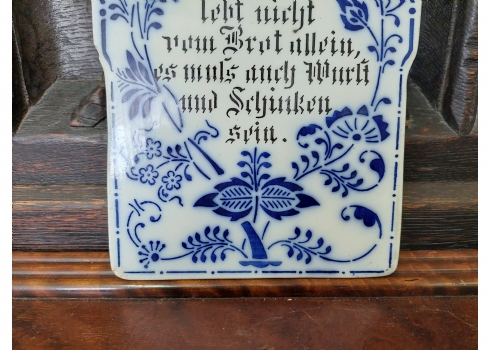 lebt nicht
vom Brot allein,
es muſs auch Wurſt
und Schinken
sein.